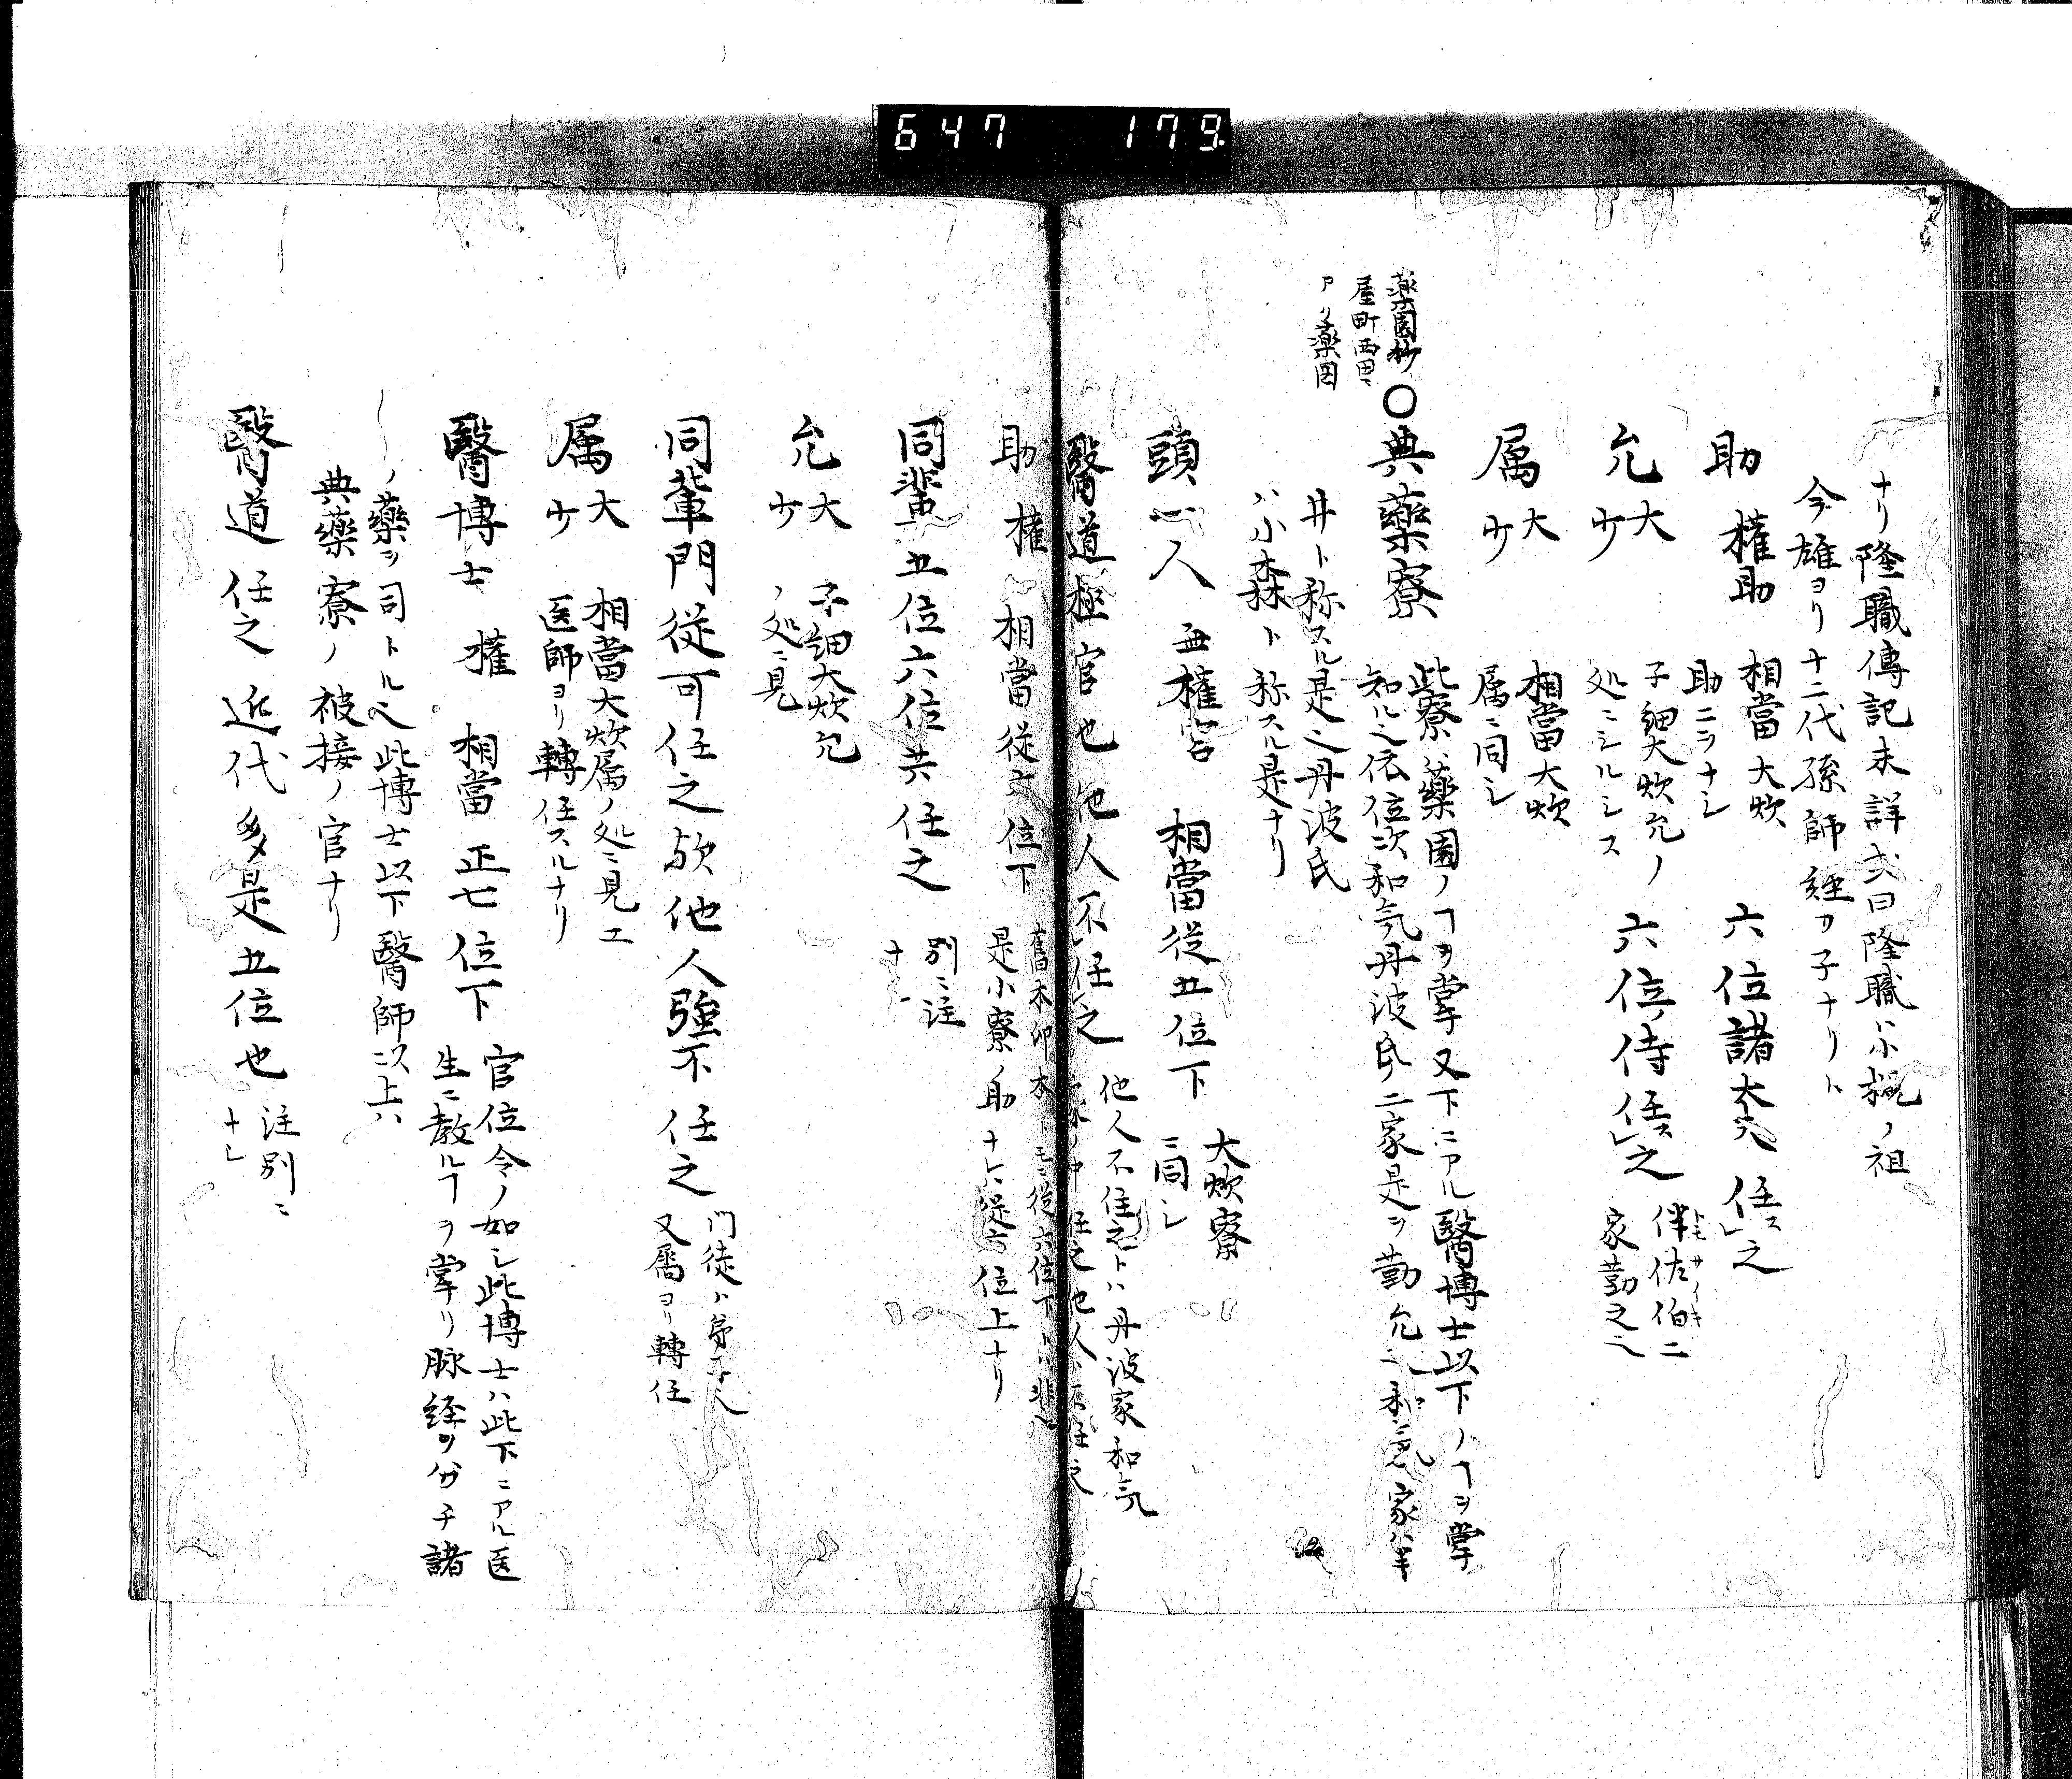 647 179
ナリ隆職傳記未詳或曰隆職ハ小槻ノ祖
今雄ヨリ十二代孫師経カ子ナリト
助 權助 相當大炊
助ニヲナシ 六位諸大夫任ス之
允 大
少 子細大炊允ノ
処ニシルシス 六位侍任ス之 伴佐伯二
家勤之
トモ サイキ
属 大
少 相當大炊
属ニ同シ
薬園抄
屋町西田ニ
アリ薬園
〇典藥寮 此寮ハ藥園ノヿヲ掌又下ニアル醫博士以下ノヿヲ接
知ル 依位次和氣丹波氏ノ二家是ヲ勤
井ト称スル是 丹波氏
ハ小森ト称スル是ナリ
頭一人 無權官 相當從五位下 大炊寮
ニ同シ
醫道極官也他人不任之 他人不任之トハ丹波家和氣
助 權 相當從六位下 舊本印本
是小寮ノ助ナレハ從六位上ナリ
同輩五位六位共任之 別ニ注
允 大
少 子細大炊允
ノ処ニ見
同輩門徒可任之欤他人強不任之 門徒ハ
又属ヨリ轉任
属 大
少 相當大炊属ノ処ニ見エ
医師ヨリ轉任スルナリ
醫博士 權 相當正七位下 官位令ノ如シ此博士ハ此下ニアル医
生ニ教ルヿヲ掌リ脉経ヲ分チ諸
ノ藥ヲ司トル 此博士以下醫師以上ハ
典藥寮ノ被接ノ官ナリ
醫道任之近代多是五位也 注別ニ
ナシ